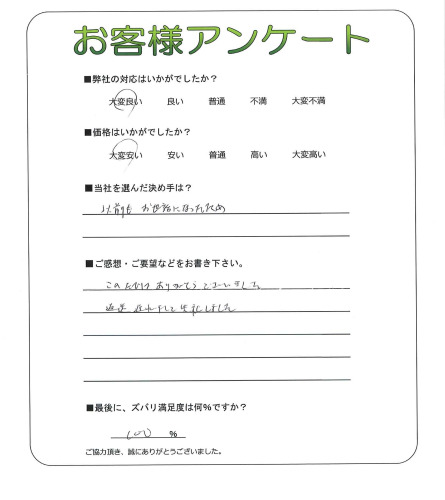 お客様アンケート
■弊社の対応はいかがでしたか？
大変良い 良い 普通 不満 大変不満
■価格はいかがでしたか？
大変安い 安い 普通 高い 大変高い
■当社を選んだ決め手は？
以前も お世話になったため
■ご感想・ご要望などをお書き下さい。
このたびは ありがとうございました
返送 遅れまして 失礼しました
■最後に、ズバリ満足度は何%ですか？
100 %
ご協力頂き、誠にありがとうございました。